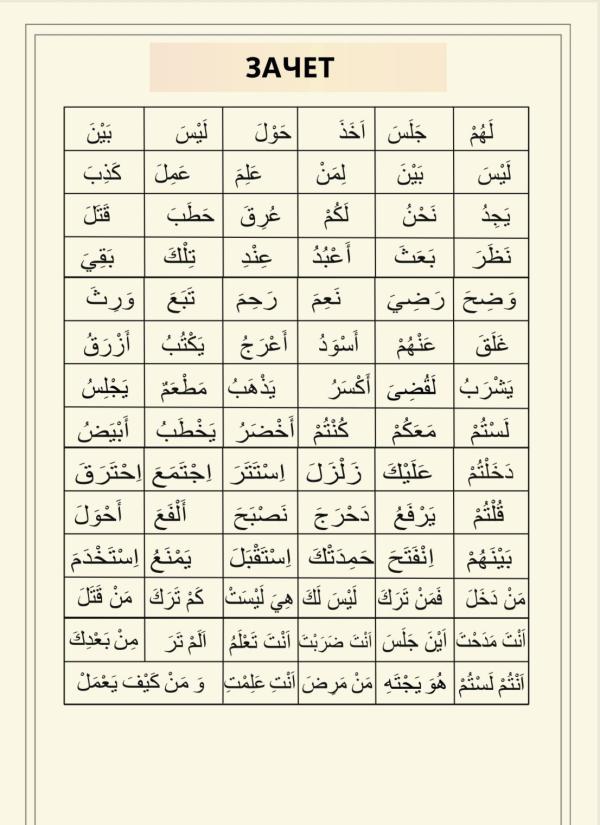 ЗАЧЕТ
لَهُمْ جَلَسَ اَخَذَ حَوْلَ لَيْسَ بَيْنَ
لَيْسَ بَيْنَ لِمَنْ عَلِمَ عَمِلَ كَذِبَ
يَجِدُ نَحْنُ لَكُمْ عُرِقَ حَطَبَ قَتَلَ
نَظَرَ بَعَثَ أَعْبُدُ عِنْدِ تِلْكَ بَقِيَ
وَضِحَ رَضِيَ نَعِمَ رَحِمَ تَبَعَ وَرِثَ
غَلَقَ عَنْهُمْ أَسْوَدُ أَعْرَجُ يَكْتُبُ أَزْرَقُ
يَشْرَبُ لَقُضِىَ أَكْسَرُ يَذْهَبُ مَطْعَمٌ يَجْلِسُ
لَسْتُمْ مَعَكُمْ كُنْتُمْ أَخْضَرُ يَخْطَبُ أَبْيَضُ
دَخَلْتُمْ عَلَيْكَ زَلْزَلَ اِسْتَتَرَ اِجْتَمَعَ اِحْتَرَقَ
قُلْتُمْ يَرْفَعُ دَحْرَجَ نَصْبَحَ أَلْفَعَ أَحْوَلَ
بَيْنَهُمْ اِنْفَتَحَ حَمِدَتْكَ اِسْتَقْبَلَ يَمْنَعُ اِسْتَخْدَمَ
مَنْ دَخَلَ فَمَنْ تَرَكَ لَيْسَ لَكَ هِيَ لَيْسَتْ كَمْ تَرَكَ مَنْ قَتَلَ
اَنْتَ مَدَحْتَ اَيْنَ جَلَسَ اَنْتَ ضَرَبْتَ اَنْتَ تَعْلَمُ اَلَمْ تَرَ مِنْ بَعْدِكَ
اَنْتُمْ لَسْتُمْ هُوَ يَجْتَهِ مَنْ مَرِضَ اَنْتِ عَلِمْتِ وَ مَنْ كَيْفَ يَعْمَلْ